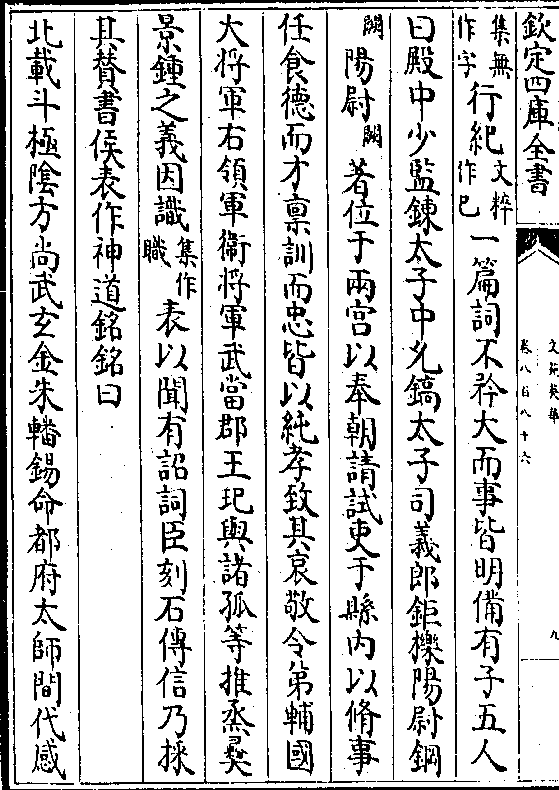 欽定四庫全書
文苑英華
卷八百八十六
九
集無作字行紀文粹作已一篇詞不矜大而事皆明備有子五人
曰殿中少監錬太子中允鎬太子司義郎鉅櫟陽尉鋼
闕陽尉闕著位于兩宫以奉朝請試吏于縣内以脩事
任食德而才禀訓而忠皆以純孝致其哀敬令弟輔國
大将軍右領軍衞将軍武當郡王玘與諸孤等推烝彛
景鍾之義因識集作職表以聞有詔詞臣刻石傳信乃採
其賛書侯表作神道銘銘曰
北載斗極陰方尚武玄金朱轓錫命都府太師間代感